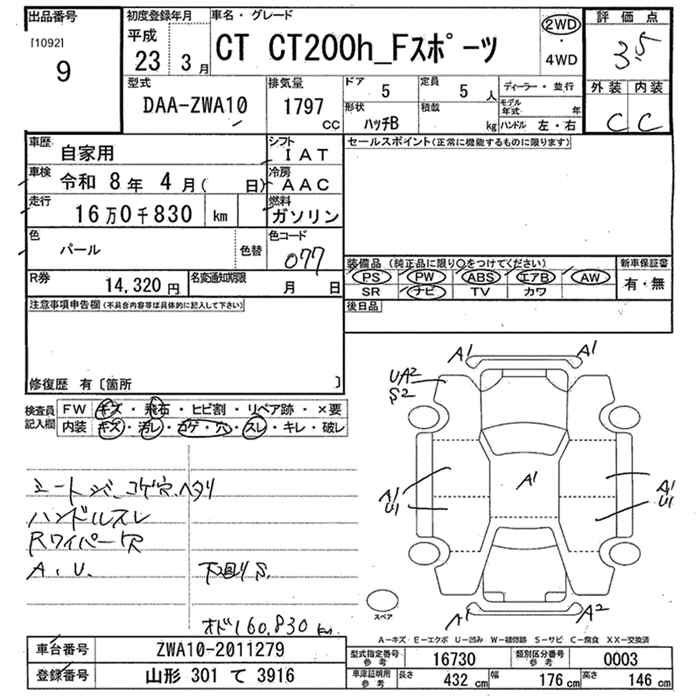 出品番号
[1092]
9
初度登録年月
平成
23 3月
車名・グレード
CT CT200h_Fスポーツ
2WD
・
4WD
評価点
3.5
外装 内装
C C
型式
DAA-ZWA10
排気量
1797
CC
ドア
5
定員
5人
形状
ハッチB
積載
kg
ディーラー・並行
モデル年式 年
ハンドル 左・右
車歴
自家用
シフト
IAT
車検
令和 8年 4月( 日)
冷房
AAC
走行
16万0千830 km
燃料
ガソリン
色
パール
色替
色コード
077
R券
14,320円
名変通知期限
月 日
セールスポイント(正常に機能するものに限ります)
装備品 (純正品に限り○をつけてください)
PS PW ABS エアB AW
SR ナビ TV カワ
新車保証書
有・無
後日品
注意事項申告欄(不具合内容等は具体的に記入して下さい)
修復歴 有〔箇所 〕
検査員記入欄
FW キズ・飛石・ヒビ割・リペア跡・×要
内装 キズ・汚レ・コゲ・穴・スレ・キレ・破レ
シートシミ、コゲ穴、ヘタリ
ハンドルスレ
Rワイパー欠
A.U. 下廻りS
オド160,830km
A1 A1
UA2
S2
A1
A1
U1
A1
U1
A1 A2
スペア
A-キズ E-エクボ U-凹み W-補修跡 S-サビ C-腐食 XX-交換済
車台番号
ZWA10-2011279
登録番号
山形 301 て 3916
型式指定番号
参考
16730
類別区分番号
参考
0003
車庫証明用
参考
長さ 432 cm 幅 176 cm 高さ 146 cm